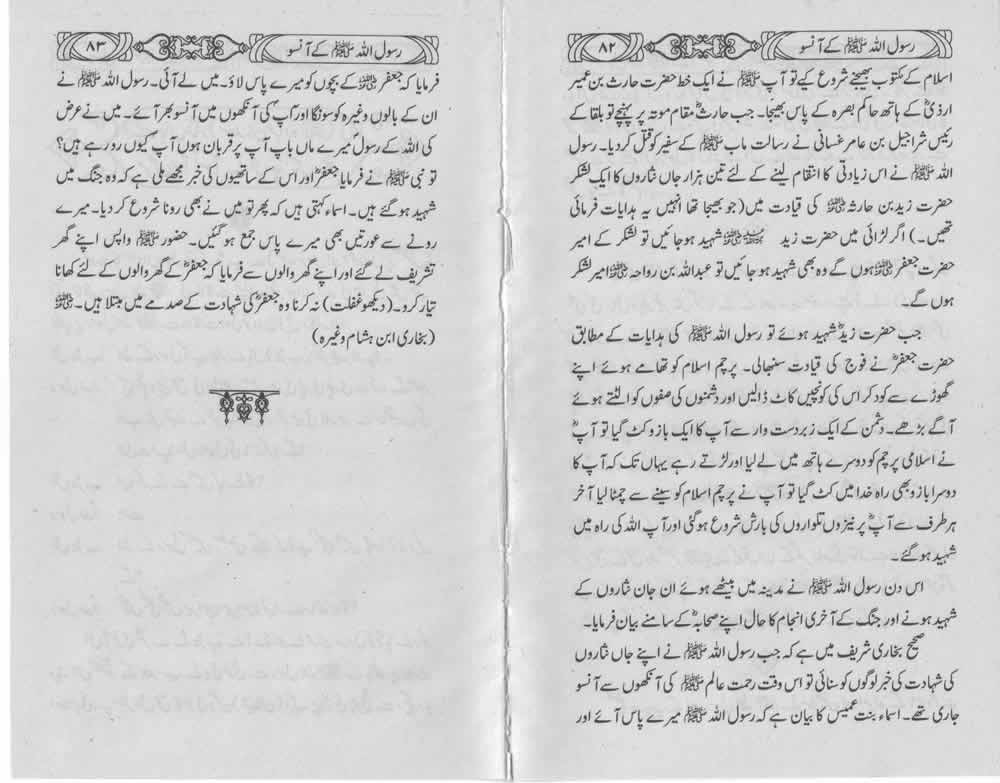 رسول اللہ ﷺ کے آنسو
۸۲
اسلام کے مکتوب بھیجنے شروع کیے تو آپ ﷺ نے ایک خط حضرت حارث بن عمیر
ارذیؓ کے ہاتھ حاکم بصرہ کے پاس بھیجا۔ جب حارثؓ مقام موتہ پر پہنچے تو بلقا کے
رئیس شراجیل بن عامر غسانی نے رسالت ماب ﷺ کے سفیر کو قتل کر دیا۔ رسول
اللہ ﷺ نے اس زیادتی کا انتقام لینے کے لئے تین ہزار جاں نثاروں کا ایک لشکر
حضرت زید بن حارثہ ؓ کی قیادت میں (جو بھیجا تھا انہیں یہ ہدایات فرمائی
تھیں۔) اگر لڑائی میں حضرت زید ؓ شہید ہو جائیں تو لشکر کے امیر
حضرت جعفر ؓ ہوں گے وہ بھی شہید ہو جائیں تو عبداللہ بن رواحہ ؓ امیر لشکر
ہوں گے۔
جب حضرت زیدؓ شہید ہوئے تو رسول اللہ ﷺ کی ہدایات کے مطابق
حضرت جعفرؓ نے فوج کی قیادت سنبھالی۔ پرچم اسلام کو تھامے ہوئے اپنے
گھوڑے سے کود کر اس کی کونچیں کاٹ ڈالیں اور دشمنوں کی صفوں کو الٹتے ہوئے
آگے بڑھے۔ دشمن کے ایک زبردست وار سے آپ کا ایک بازو کٹ گیا تو آپؓ
نے اسلامی پرچم کو دوسرے ہاتھ میں لے لیا اور لڑتے رہے یہاں تک کہ آپ کا
دوسرا بازو بھی راہ خدا میں کٹ گیا تو آپ نے پرچم اسلام کو سینے سے چمٹا لیا آخر
ہر طرف سے آپؓ پر نیزوں تلواروں کی بارش شروع ہو گئی اور آپ اللہ کی راہ میں
شہید ہو گئے۔
اس دن رسول اللہ ﷺ نے مدینہ میں بیٹھے ہوئے ان جان نثاروں کے
شہید ہونے اور جنگ کے آخری انجام کا حال اپنے صحابہؓ کے سامنے بیان فرمایا۔
صحیح بخاری شریف میں ہے کہ جب رسول اللہ ﷺ نے اپنے جاں نثاروں
کی شہادت کی خبر لوگوں کو سنائی تو اس وقت رحمت عالم ﷺ کی آنکھوں سے آنسو
جاری تھے۔ اسماء بنت عمیس کا بیان ہے کہ رسول اللہ ﷺ میرے پاس آئے اور
رسول اللہ ﷺ کے آنسو
۸۳
فرمایا کہ جعفر ؓ کے بچوں کو میرے پاس لاؤ۔ میں لے آئی۔ رسول اللہ ﷺ نے
ان کے بالوں وغیرہ کو سونگا اور آپؐ کی آنکھوں میں آنسو بھر آئے۔ میں نے عرض
کی اللہ کے رسولؐ میرے ماں باپ آپ پر قربان ہوں آپ کیوں رو رہے ہیں؟
تو نبی ﷺ نے فرمایا جعفرؓ اور اس کے ساتھیوں کی خبر مجھے ملی ہے کہ وہ جنگ میں
شہید ہو گئے ہیں۔ اسماء کہتی ہیں کہ پھر تو میں نے بھی رونا شروع کر دیا۔ میرے
رونے سے عورتیں بھی میرے پاس جمع ہو گئیں۔ حضور ﷺ واپس اپنے گھر
تشریف لے گئے اور اپنے گھر والوں سے فرمایا کہ جعفرؓ کے گھر والوں کے لئے کھانا
تیار کرو۔ (دیکھو غفلت) نہ کرنا وہ جعفرؓ کی شہادت کے صدمے میں مبتلا ہیں۔ ؓ
(بخاری ابن ہشام وغیرہ)